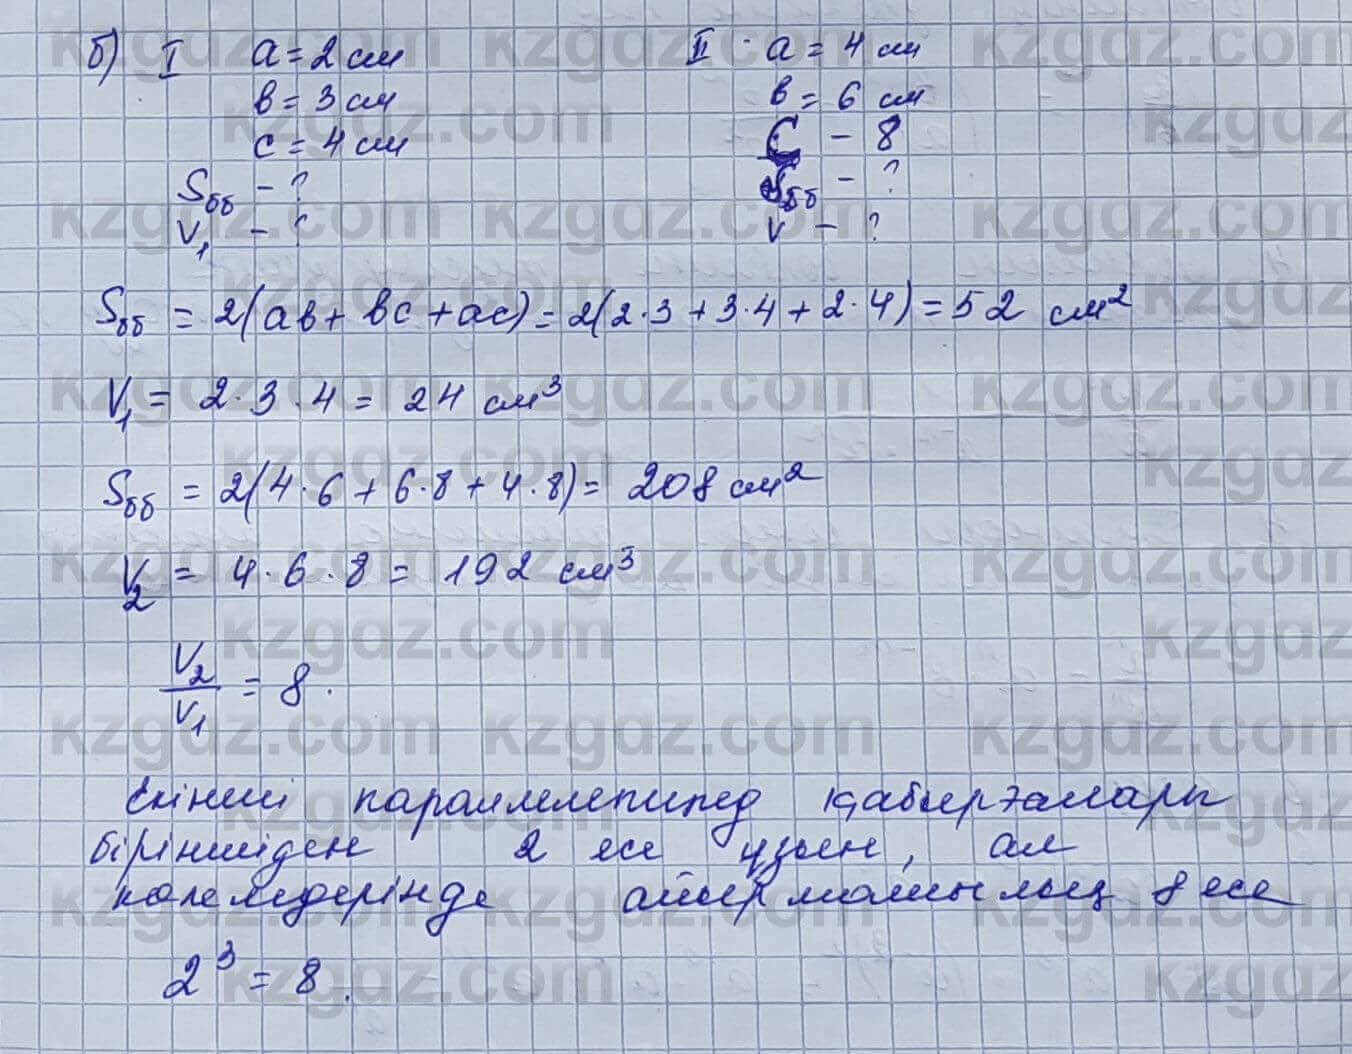 б) I a = 2 см II · a = 4 см
в = 3 см в = 6 см
с = 4 см С – 8
Sбб – ? Sбб – ?
V1 – ? V – ?
Sбб = 2(ав + вс + ас) = 2(2·3 + 3·4 + 2·4) = 52 см²
V1 = 2·3·4 = 24 см³
Sбб = 2(4·6 + 6·8 + 4·8) = 208 см²
V2 = 4·6·8 = 192 см³
V2/V1 = 8.
Екінші параллелепипед қабырғалары
біріншіден 2 есе ұзын, ал
көлемдерінде айырмашылық 8 есе
2³ = 8.
kzgdz.com